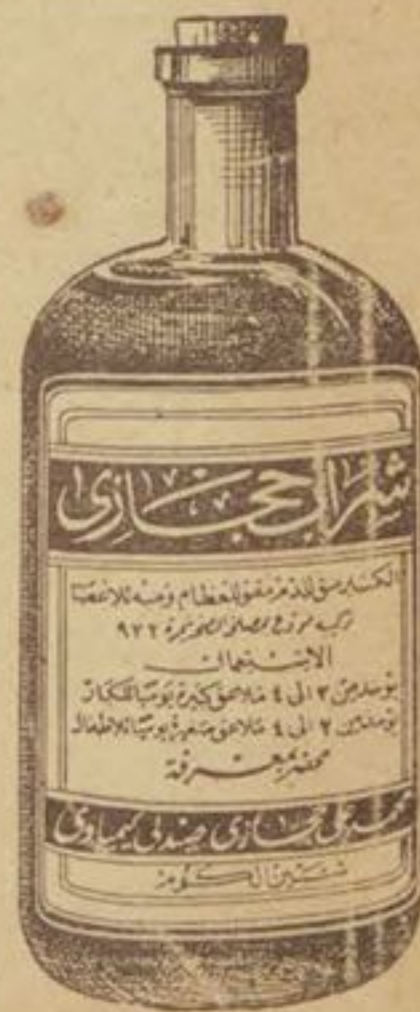 شراب حجازى
الكسير منق للدم مقو للعظام ومنبه للاعصاب
تركيبه مودع بمصلحة الصحة نمرة ٩٢٢
الاستعمال
يوخذ من ٢ الى ٤ ملاعق كبيرة يوميا للكبار
يوخذ من ٢ الى ٤ ملاعق صغيرة يوميا للاطفال
محضر بمعرفة
محمد على حجازى صيدلى كيماوى
شبين الكوم